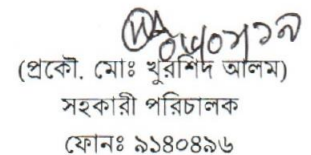 (প্রকৌ. মোঃ খুরশিদ আলম)
সহকারী পরিচালক
ফোনঃ ৯১৪০৪৯৬